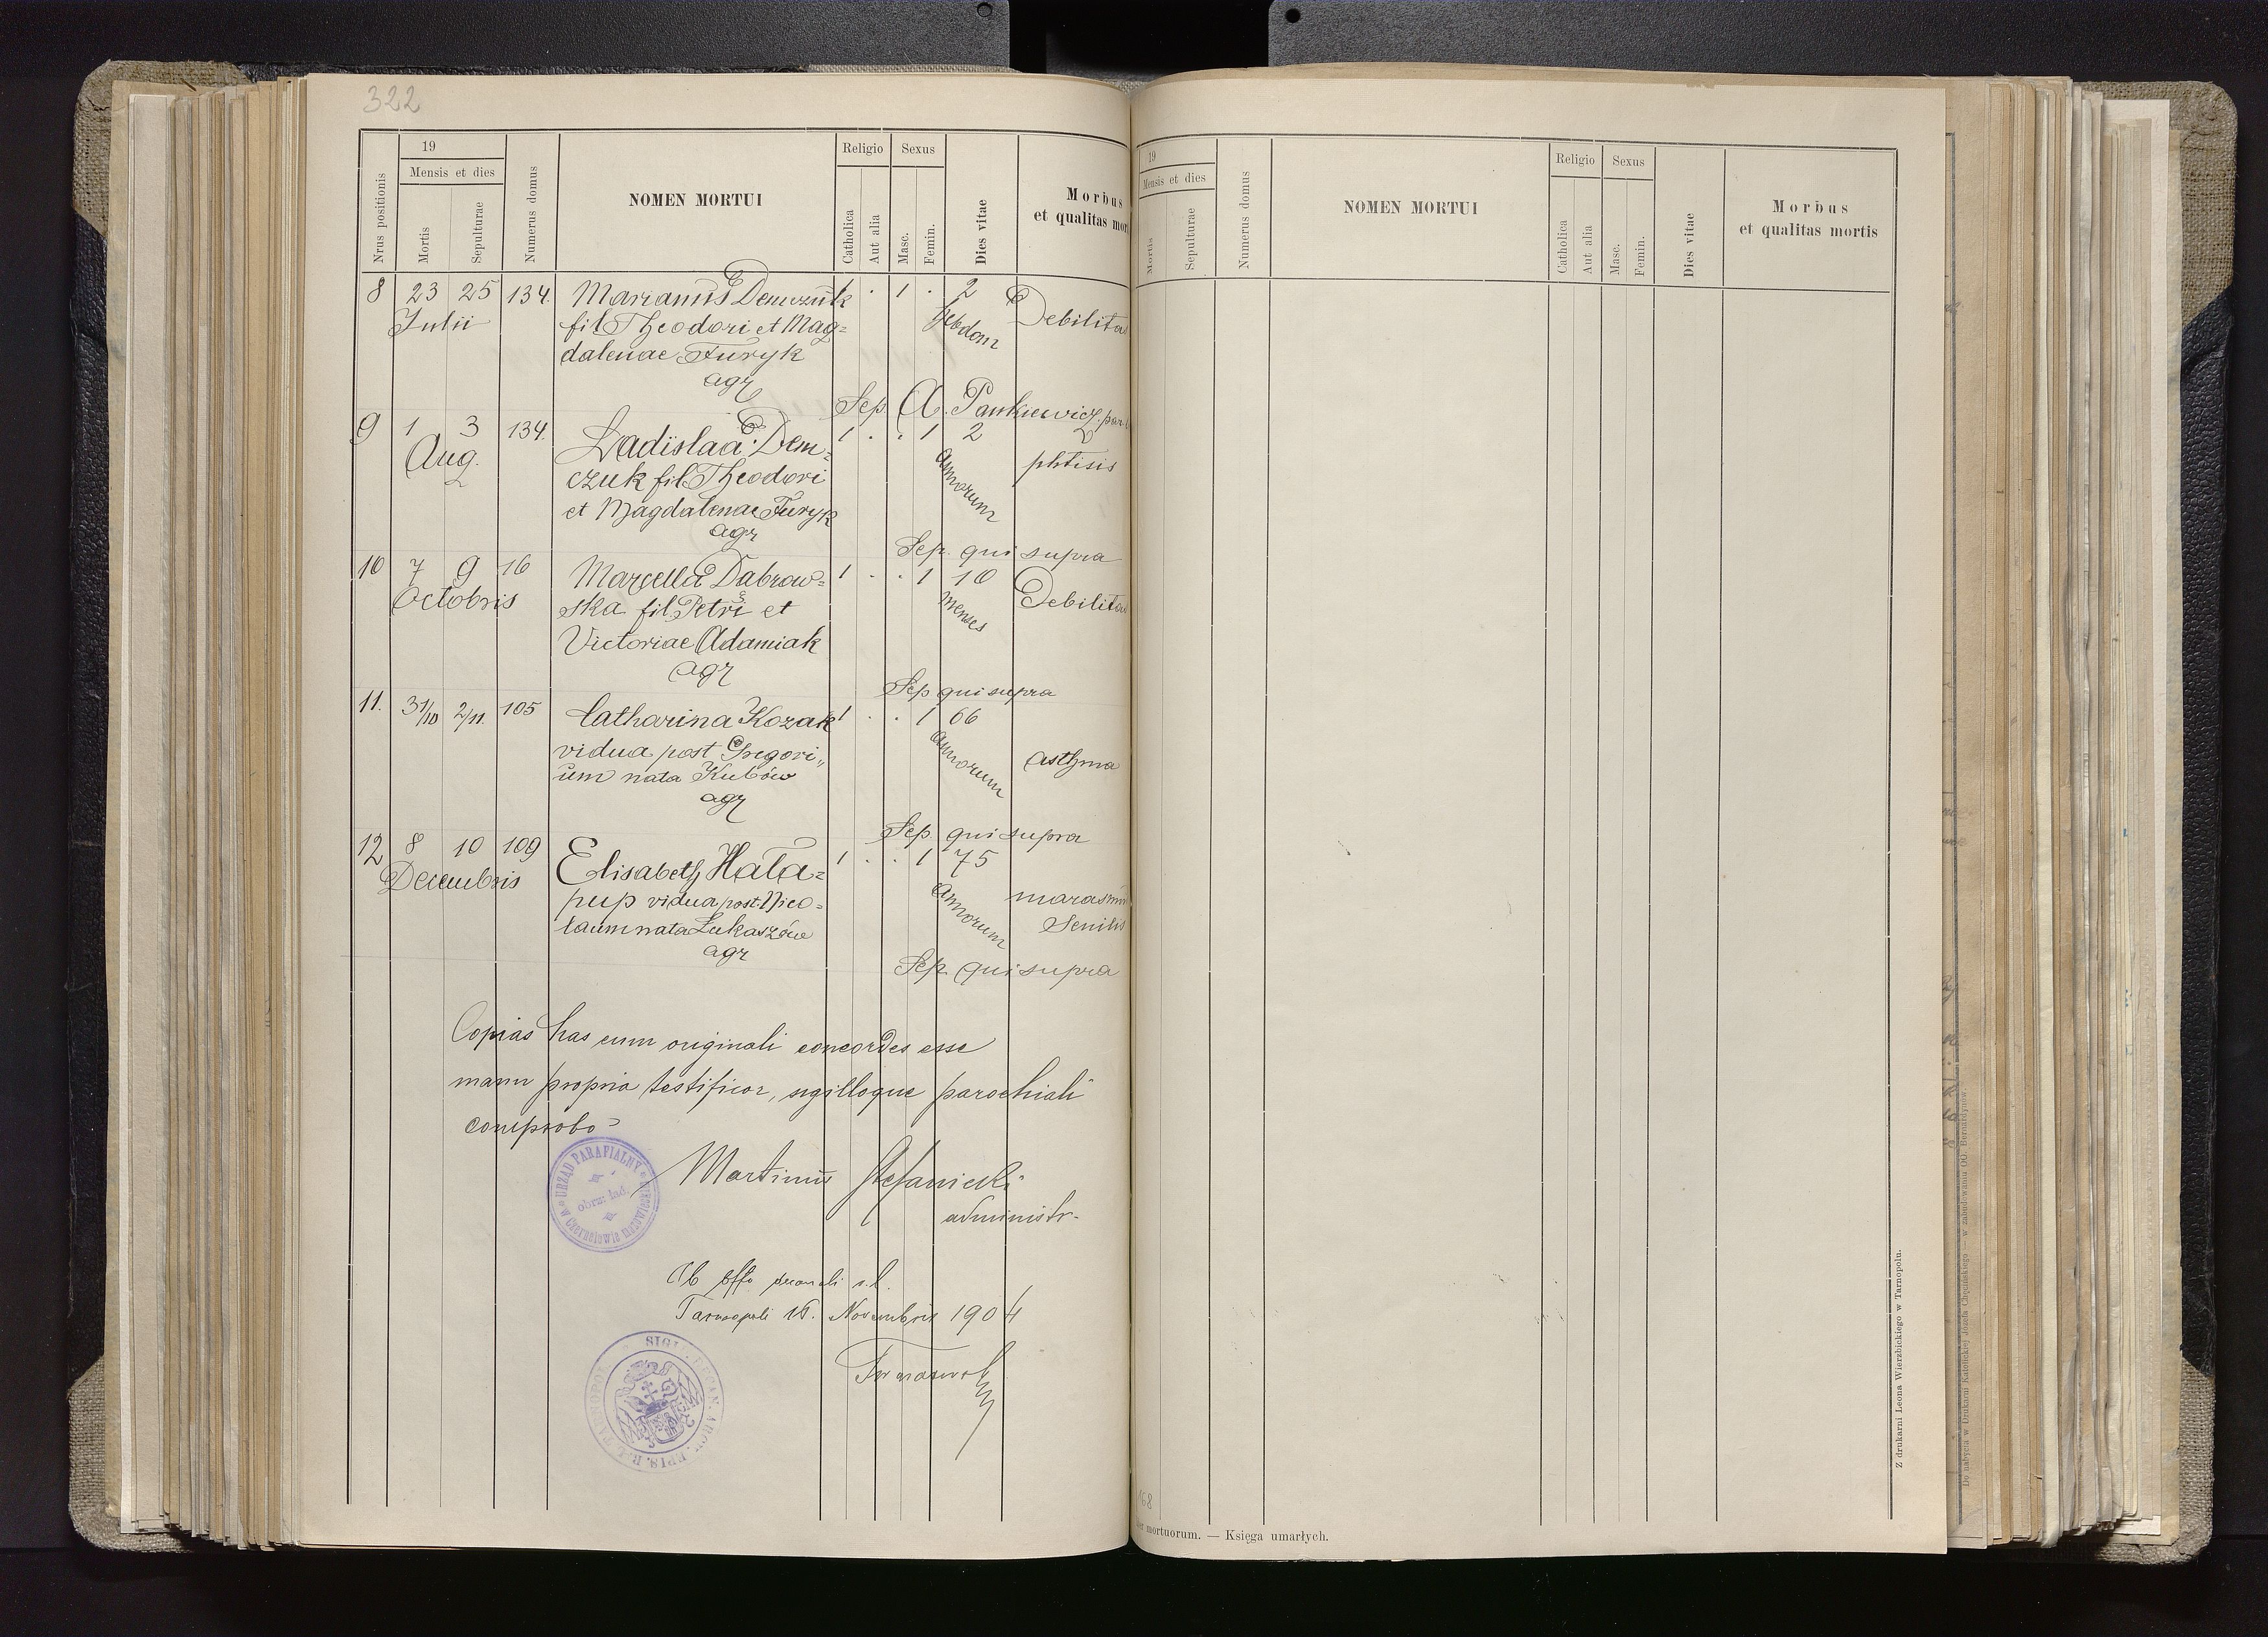 322
19
Mensis et dies
Nrus positionis
Mortis
Sepulturae
Numerus domus
NOMEN MORTUI
Religio
Catholica
Aut alia
Sexus
Masc.
Femin.
Dies vitae
Morbus
et qualitas mor
8 23 25 134. Marianus Demczuk 1 . 1 . 2
Julii fil. Theodori et Mag= hebdom Debilita
dalenae Furyk
agr
Sep. A. Pankiewicz par
9 1 3 134. Ladislaa Dem= 1 . . 1 2
Aug. czuk fil. Theodori annorum phtisis
et Magdalenae Furyk
agr
Sep. qui supra
10 7 9 16 Marcella Dabrow= 1 . . 1 10
Octobris ska fil. Petri et menses Debilita
Victoriae Adamiak
agr
Sep qui supra
11. 31/10 2/11. 105 Catharina Kozak 1 . . 1 66
vidua post Gregori„ annorum asthma
um nata Kubów
agr
Sep. qui supra
12 8 10 109 Elisabeth Hała= 1 . . 1 75
Decembris pup vidua post Nico= annorum marasm
laum nata Łukaszów Senilis
agr
Sep. qui supra
Copias has cum originali concordes esse
manu propria testificor, sigilloque parochiali
comprobo
Martinus Stefanicki
administr-
URZĄD PARAFIALNY
obrz. łać.
w Czernelowie mazowieckim
Ab offo decanali r. l.
Tarnopoli 16. Novembris 1904
19
Mensis et dies
Mortis
Sepulturae
Numerus domus
NOMEN MORTUI
Religio
Catholica
Aut alia
Sexus
Masc.
Femin.
Dies vitae
Morbus
et qualitas mortis
168
mortuorum. — Księga umarłych.
Z drukarni Leona Wierzbickiego w Tarnopolu.